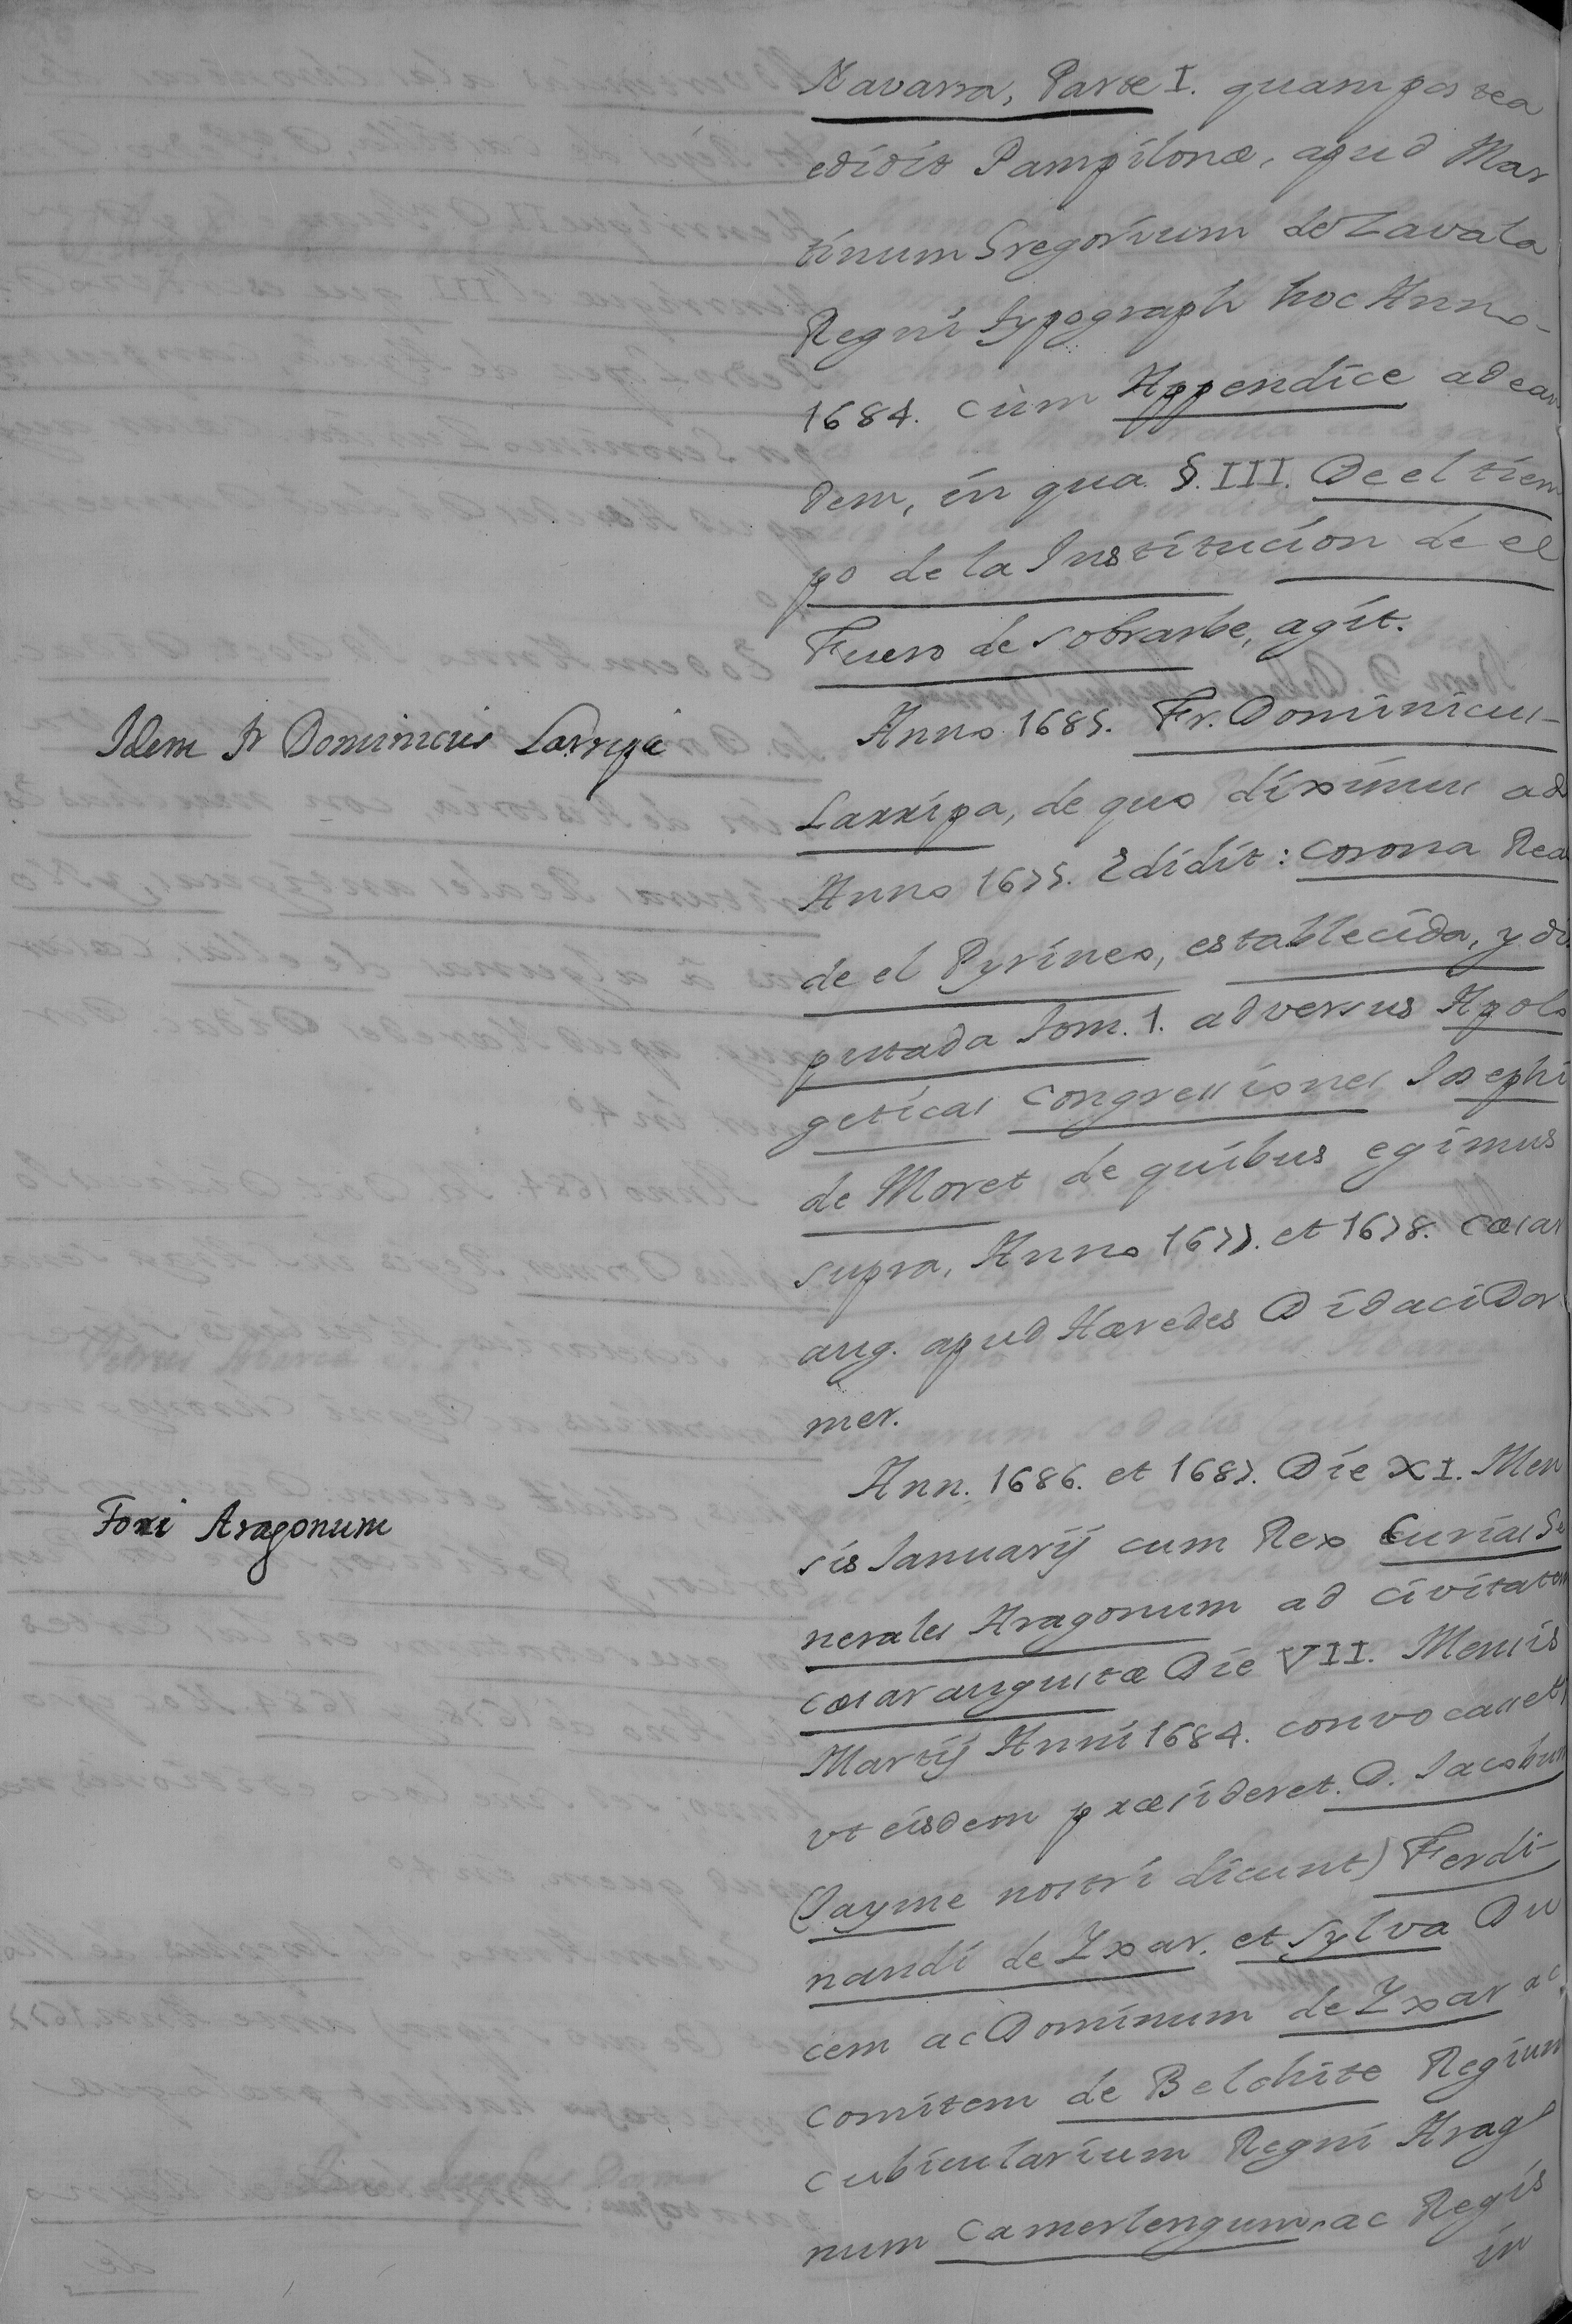 Navarra, Parte I. quam postea
edidit Pampilonæ, apud Mar
tinum Gregorium de Zavala
Regni typograph hoc Anno-
1684. cùm Appendice ad ean
dem, in qua §. III. De el tiem
po de la Institucion de el
Fuero de Sobrarbe, agit.
Idem Fr Dominicus Larripa
Anno 1685. Fr. Dominicus-
Larripa, de quo diximus ad
Anno 1675. Edidit: Corona Rea
de el Pyrineo, establecida, y dis
putada Tom. 1. adversus Apolo
geticas Congressiones Iosephi
de Moret de quibus egimus
supra, Anno 1677. et 1678. Cæsar
aug. apud Hæredes Didaci Dor
mer.
Foxi Aragonum
Ann. 1686. et 1687. Die XI. Men
sis Ianuarij cum Rex Curias Ge
nerales Aragonum ad civitatem
Cæsaraugustæ Die VII. Mensis
Martij Anni 1684. convocasset,
vt eisdem præsideret. D. Iacobum
(Jayme nostri dicunt) Ferdi-
nandi de Yxar. et Sylva Du
cem ac Dominum de Yxar ac
comitem de Belchite Regium
cubicularium Regni Arago
num Camerlengum, ac Regis
in